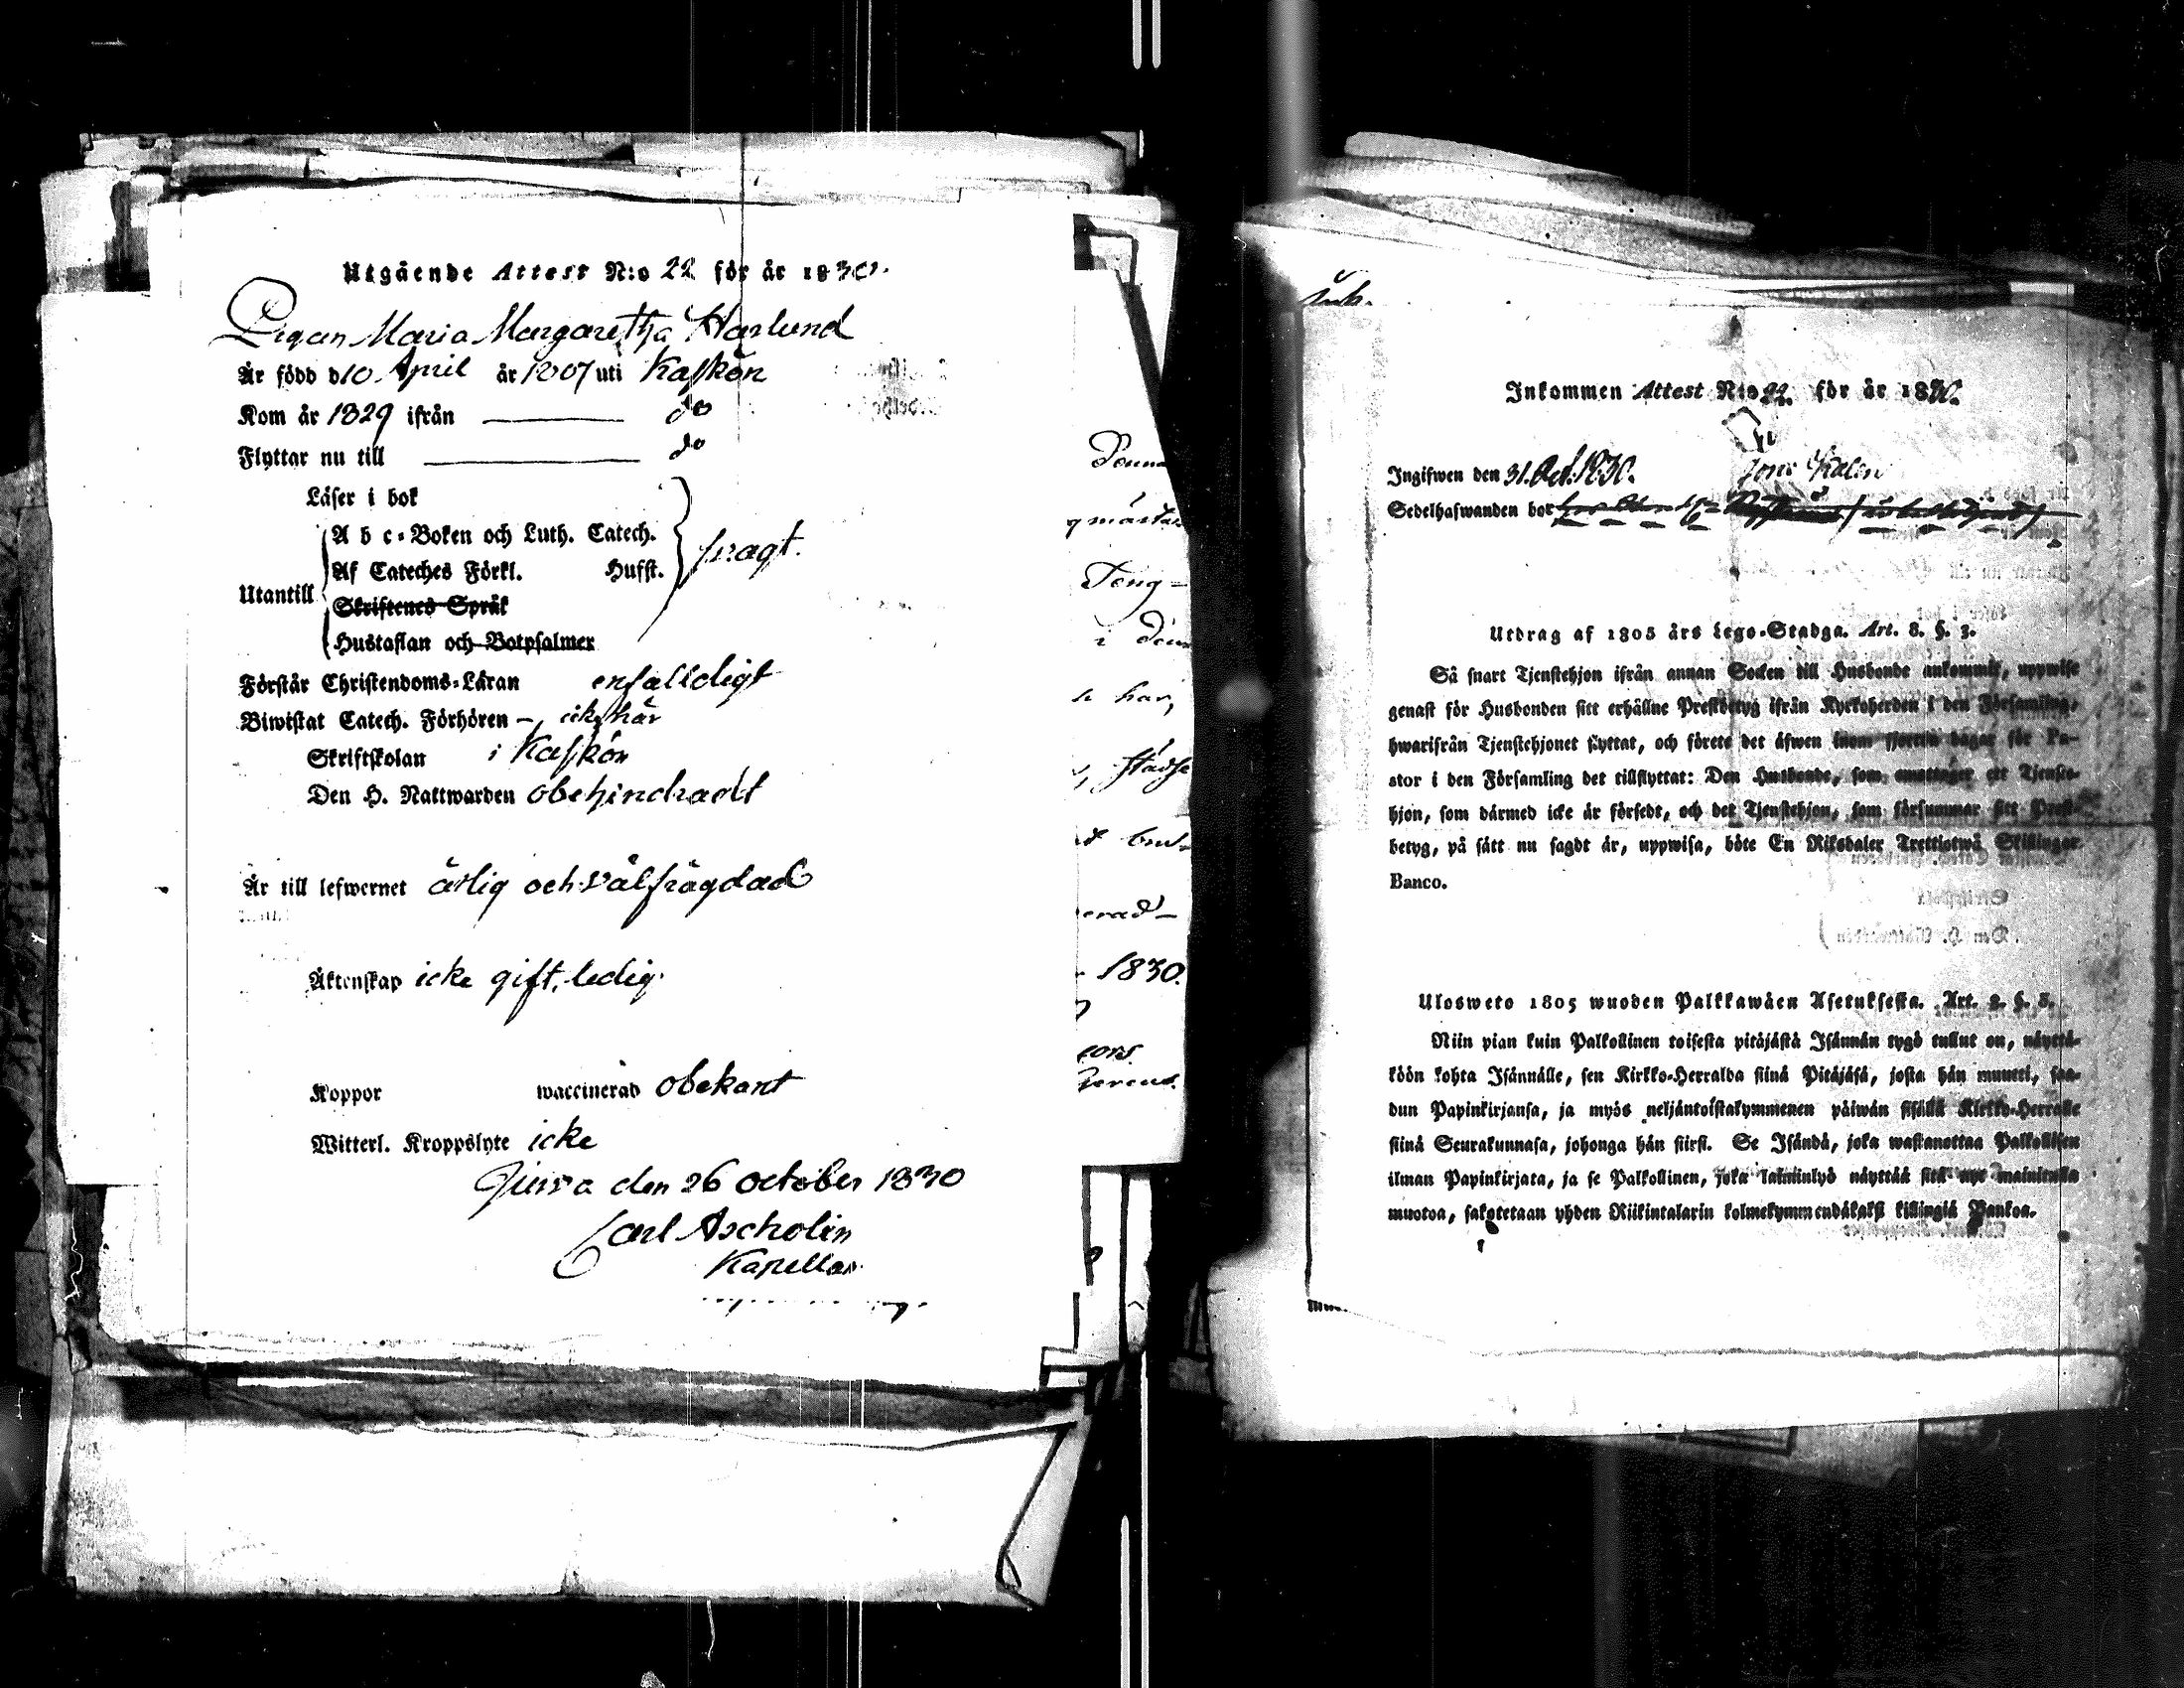 Utgående Attest N:o 22 för år 1830.
Pigan Maria Margaretha Harlund
Är född d 10 April år 1807 uti Kaskön
Kom år 1829 ifrån do
Flyttar nu till do
Läser i bok
A b c-Boken och Luth. Catech.
Af Cateches Förkl. Husst.
svagt.
Utantill
Skriftenes Språk
Hustaflan och Botpsalmer
Förstår Christendoms-Läran enfalldigt
Biwistat Catech. Förhören – icke här
Skriftskolan i Kaskön
Den H. Nattwarden obehindradt
Är till lefwernet ärlig och välfrägdad
Äktenskap icke gift, ledig.
Koppor waccinerad obekant
Witterl. Kroppslyte icke
den 26 october 1830
Carl Ascholin
Kapellan
qmästar
Teng-
i den
har,
städse
erad-
1830.
Inkommen Attest N:o 22. för år 1830.
Ingifwen den 31. Oct. 1830.
Sedelhafwanden bor
Utdrag af 1805 års Lego-Stadga. Art. 8. §. 3.
Så snart Tjenstehjon ifrån annan Socken till Husbonde ankommit, uppwise
genast för Husbonden sitt erhållne Prestbetyg ifrån Kyrkoherden i den Församling,
hwarifrån Tjenstehjonet flyttat, och förete det äfwen inom fjorton dagar för Pa-
stor i den Församling det tillflyttat: Den Husbonde, som emottager ett Tjenste-
hjon, som därmed icke är försedt, och det Tjenstehjon, som försummar sitt Prest-
betyg, på sätt nu sagdt är, uppwisa, böte En Riksdaler Trettiotwå Skillingar
Banco.
Ulosweto 1805 wuoden Palkkawäen Asetuksesta. Art. 8. §. 3.
Niin pian kuin Palkollinen toisesta pitäjästä Isännän tygö tullut on, näyttä-
köön kohta Isännälle, sen Kirkko-Herralda siinä Pitäjäsä, josta hän muutti, saa-
dun Papinkirjansa, ja myös neljäntoistakymmenen päiwän sisällä Kirkko-Herralle
siinä Seurakunnasa, johonga hän siirsi. Se Isändä, joka wastanottaa Palkollisen
ilman Papinkirjata, ja se Palkollinen, joka laiminlyö näyttää sitä nyt mainitulla
muotoa, sakotetaan yhden Riikintalarin kolmekymmendäkaksi killingiä Bankoa.